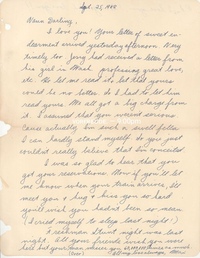 Sept. 25, 1944
Nana Darling,
I love you! Your letter of sweet en-
dearment arrived yesterday afternoon. Very
timely too. Jerry had received a letter from
his girl in professing great love,
etc. He let me read it, but that yours
could be no better. So I had to let him
read yours. We all got a big charge from
it. I assumed that you weren't serious
cause actually I'm such a swell fella.
I can hardly stand myself. So you just
couldn't really believe that I'm conceited.
I was so glad to hear that you
got your reservations. Now if you'll let
me know when your train arrives, I'll
meet you & hug & kiss you so hard
you'll wish you hadn't been so mean
(I cried myself to sleep last night!)
last
night. All your friends
hell but
(Over)